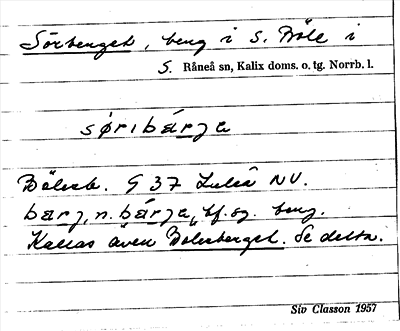 Sörberget, berg i S. Böle i
S. Råneå sn, Kalix doms. o. tg. Norrb. l.
søribárja
Böleb. G 37 Luleå NV.
barj, n. bárja, bf. sg. berg.
Kallas även Bölesberget. Se detta.
Siv Classon 1957